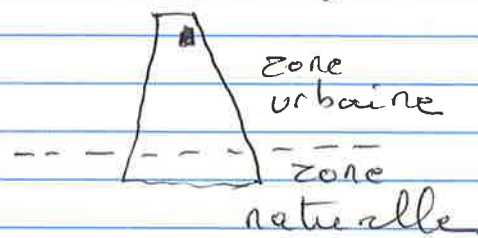 zone
urbaine
zone
naturelle